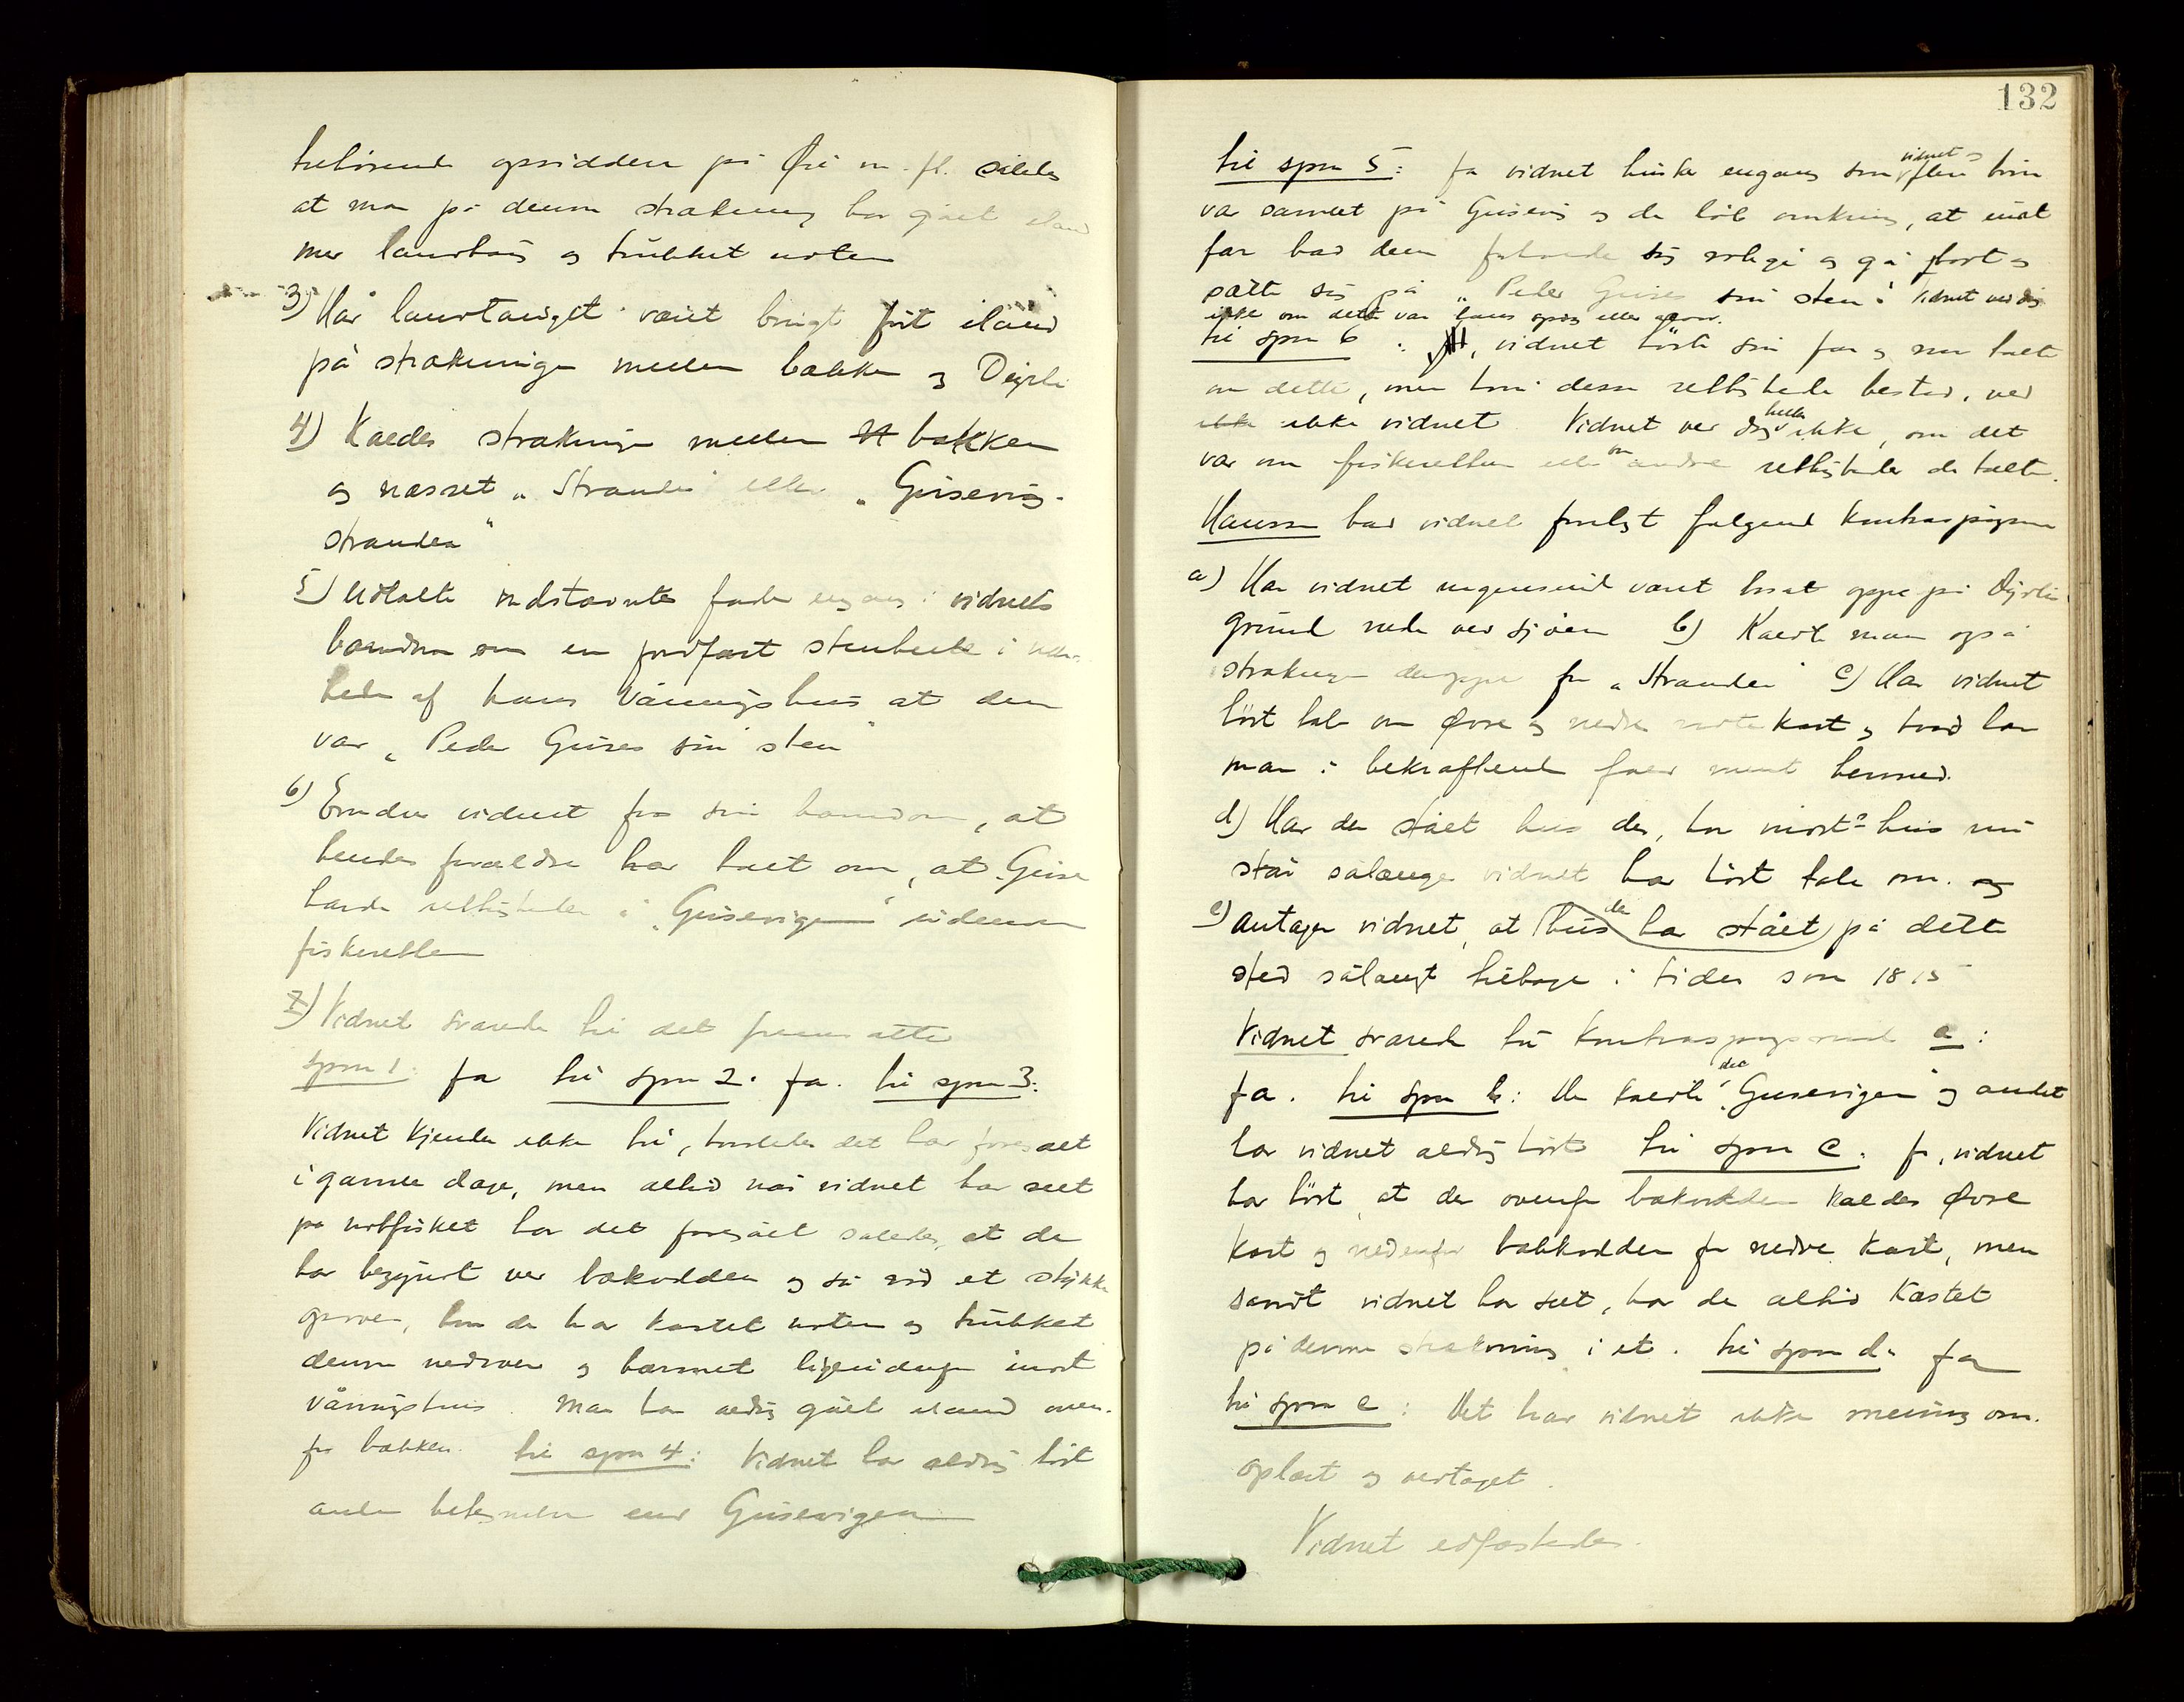 tilhørende opsiddere på Øie m.fl. således
at man på denne strækning har gået iland
med laurtaug og trukket noten
3) Har laurtauget været bragt ført iland
på strækningen mellem bækken og Dejrli
4) Kaldes strækningen mellem bækken
og næsset "Stranden" eller "Gusevig-
stranden"
5) Udtalte indstævntes fader engang i vidnets
barndom om en jordfast stenbleite i nær-
heden af hans våningshus at den
var "Peder Guses sin sten"
6) Erindrer vidnet fra sin barndom, at
hendes forældre har talt om, at Guse
havde rettigheder i "Gusevigen" udenom
fiskeretten
7) Vidnet svarede til det fremsatte
spm 1: ja til spm 2: ja. til spm 3:
Vidnet kjender ikke til, hvorledes det har foregået
i gamle dage, men altid når vidnet har seet
på notfisket har det foregået således, at de
har begyndt ved bækodden og så rod et stykke
opover, hvor de har kastet noten og trukket
denne nedover og bærmet ligeudenfor indst.
våningshus. Man har aldrig gået iland oven-
for bækken. til spm 4: Vidnet har aldrig hørt
anden betegnelse end Gusevigen
132
til spm 5: ja vidnet husker engang som vidnet og flere børn
var samlet på Gusevig og de løb omkring, at indst
far bad dem forholde sig rolige og gå bort og
sætte sig på "Peder Guses sin sten". Vidnet ved dog
ikke om dette var hans spøg eller alvor.
til spm 6: vidnet hørte sin far og mor talte
om dette, men hvori disse rettigheder bestod, ved
ikke ikke vidnet. Vidnet ved dog heller ikke, om det
var om fiskeretten eller om andre rettigheder de talte.
Hansson bad vidnet forelagt følgende kontraspørgsmål
a) Har vidnet nogensinde været bosat oppe på Dyrlis
grund nede ved sjøen b) Kaldte man også
strækningen deroppe for "Stranden" c) Har vidnet
hørt tale om Øvre og nedre notekast og hvad har
man i bekræftende fald ment hermed.
d) Har der stået hus der, hvor indst's hus nu
står sålænge vidnet har hørt tale om. og
e) Antager vidnet, at der har stået hus på dette
sted sålangt tilbage i tiden som 1815
Vidnet svarede til kontraspørgsmål a:
ja. til spm b: De kaldte det "Gusevigen" og andet
har vidnet aldrig hørt. til spm c: ja, vidnet
har hørt, at der ovenfor bækodden kaldes Øvre
kast og nedenfor bækkodden for nedre kast, men
såvidt vidnet har seet, har de altid kastet
på denne strækning i et. til spm d: ja
til spm e: Det har vidnet ikke mening om.
oplæst og vedtaget.
Vidnet edfæstedes.